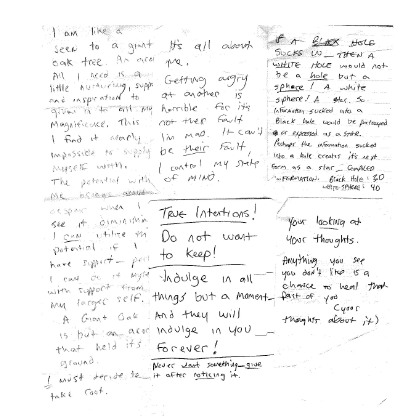 I am like a
seed to a giant
oak tree. An acorn
All I need is a
little nurturing, support
and inspiration to
grow into all my
Magnificence. This
I find it nearly
impossible to supply
myself with.
The potential with
me
when I
see it diminishing
I can utilize this
potential if I
have support
I can do it myself
with support from
my larger self.
A Giant Oak
is but an acorn
that held its
ground.
I must decide to
take root.
It's all about
me.
Getting angry
at another is
horrible for its
not their fault
I'm mad. It can't
be their fault,
I control my state
of MIND.
TRUE Intentions!
Do not want
to keep!
Indulge in all
things but a moment
And they will
indulge in you
forever!
Never want something give
it after noticing it.
IF A BLACK HOLE
SUCKS IN THEN A
WHITE HOLE would not
be a hole but a
sphere! A white
sphere! A star. So
information sucked into a
Black hole would be
or expressed as a star.
Perhaps the information sucked
into a hole creates it's next
form as a star
INFORMATION. Black hole: 3D
WHITE SPHERE: 4D
Your looking at
your thoughts.
Anything you see
you don't like is a
chance to heal that
part of you
(your
thoughts about it)